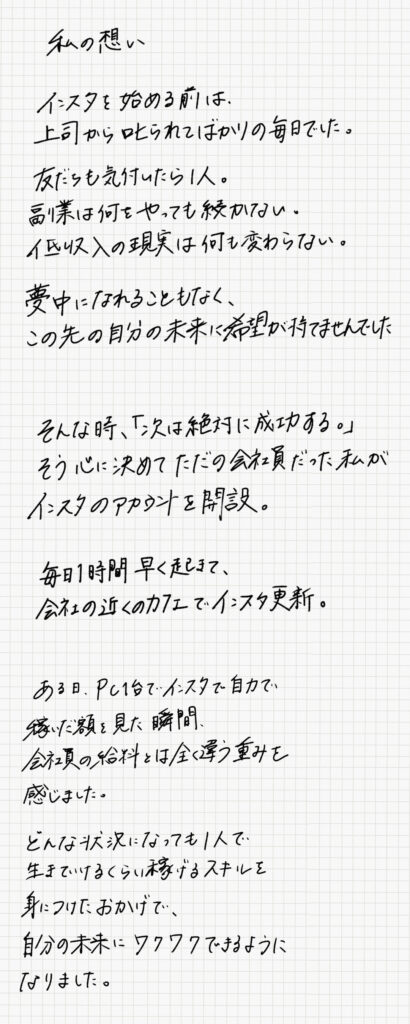 私の想い
インスタを始める前は、
上司から叱られてばかりの毎日でした。
友だちも気付いたら1人。
副業は何をやっても続かない。
低収入の現実は何も変わらない。
夢中になれることもなく、
この先の自分の未来に希望が持てませんでした
そんな時、「次は絶対に成功する。」
そう心に決めてただの会社員だった私が
インスタのアカウントを開設。
毎日1時間早く起きて、
会社の近くのカフェでインスタ更新。
ある日、PC1台でインスタで自力で
稼いだ額を見た瞬間、
会社員の給料とは全く違う重みを
感じました。
どんな状況になっても1人で
生きていけるくらい稼げるスキルを
身につけたおかげで、
自分の未来にワクワクできるように
なりました。